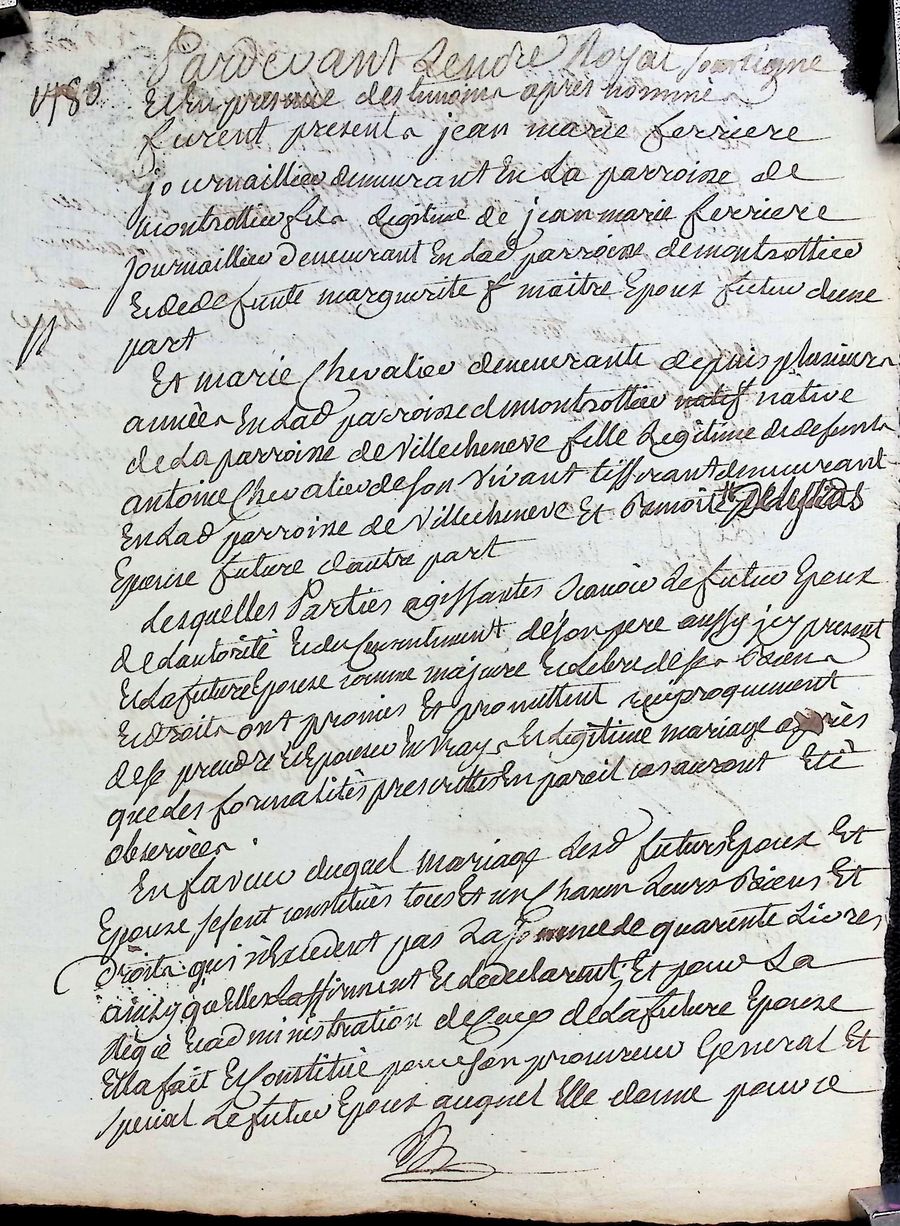 Pardevant Lenore Royal soussigné
1780
Et En presence des temoins apres nommés
furent presents jean marie ferriere
journaillier demeurant En La parroisse de
montrottier fils Legitime de jean marie ferriere
journaillier demeurant En Lad parroisse de montrottier
Et de defunte marguerite maitre Epoux futur dune
part
Et marie Chevalier demeurante depuis plusieurs
années En Lad parroisse de montrottier natif native
de La parroisse de Villecheneve fille Legitime de defunt
antoine Chevalier de son vivant tisserant demeurant
En Lad parroisse de Villecheneve Et Benoite
Epouse future dautre part
Lesquelles Parties agissantes scavoir Le futur Epoux
de Lautorité Et du Consentement de son pere aussy jcy present
Et La future Epouse comme majeure Et Libre de ses Biens
Et droits ont promis Et promettent reciproquement
de se prendre Et Epouser En vray Et Legitime mariage apprès
que Les formalités prescrittes En pareil cas auront Eté
observées
En faveur duquel mariage Lesd futurs Epoux Et
Epouse se sont constitués tous Et un Chacun Leurs Biens Et
Droits qui n'Excedent pas La somme de quarente Livres
ainsy qu'Elles Laffirment Et Le declarent; Et pour La
régie Et administration de Ceux de La future Epouse
Ella fait Et Constitué pour son procureur General Et
special Le futur Epoux auquel Elle donne pour ce